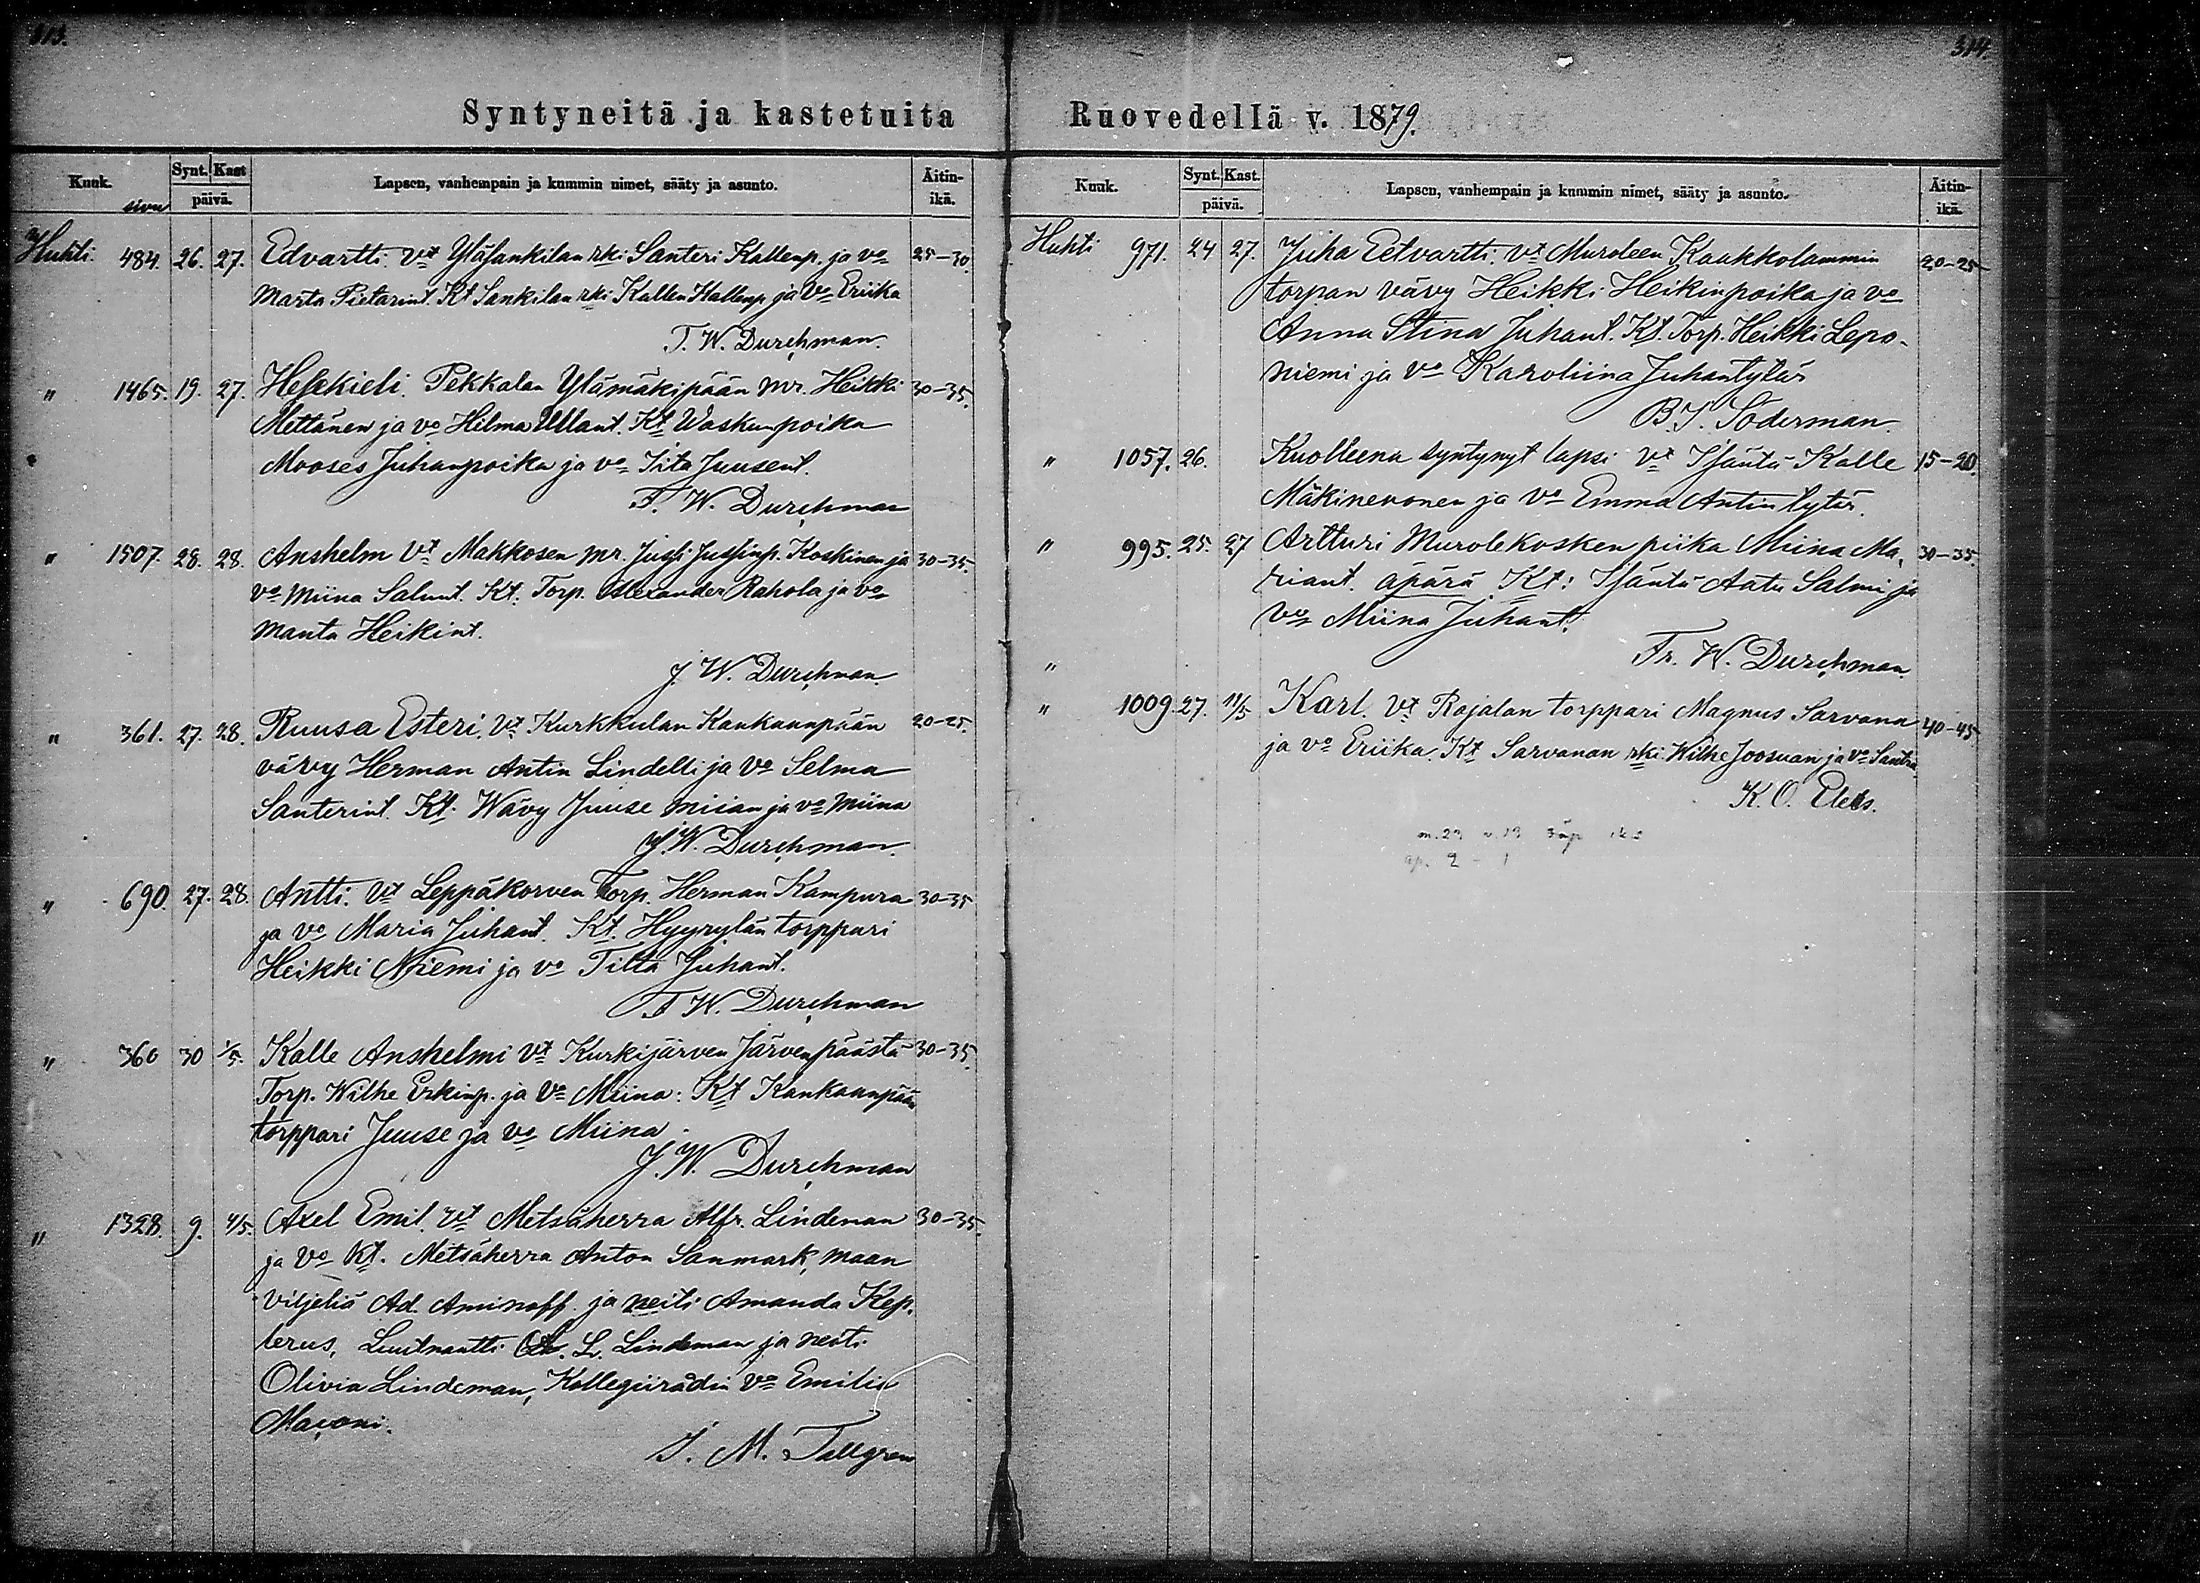 313.
Syntyneitä ja kastetuita
Kuuk. Synt. Kast Lapsen, vanhempain ja kummin nimet, sääty ja asunto. Äitin-
sivu päivä. ikä.
Huhti. 484. 26. 27. Edvartti. Vt Yläjankilan rki Santeri Kallenp. ja vo 25-30.
Marta Pietarint. Kt Sankilan rki Kallen Kallenp ja Vo Eriika
F. W. Durchman.
" 1465. 19. 27. Hesekieli. Pekkalan Ylämäkipään mr. Heikki 30-35.
Mettänen ja vo Hilma Ullant. Kt Waskunpoika
Mooses Juhanpoika ja vo Iita Juusent.
F. W. Durchman
" 1507. 28. 28. Anshelm Vt Makkosen mr. Jussi Jussinp. Koskinen ja 30-35.
vo Miina Salunt. Kt: Torp. Alexander Rahola ja vo
Manta Heikint.
F. W. Durchman.
" 361. 27. 28. Ruusa Esteri. Vt Kurkkulan Kankaanpään 20-25.
vävy Herman Antin Lindelli ja Vo Selma
Santerint. Kt. Wävy Juuse miian ja vo Miina
F. W. Durchman.
" 690. 27. 28. Antti. Vt Leppäkorven Torp. Herman Kampura 30-35
ja vo Maria Juhant. Kt. Hyyrylän torppari
Heikki Niemi ja vo Tilta Juhant.
F. W. Durchman
" 360 30 1/5. Kalle Anshelmi Vt Kurkijärven Järvenpäästä 30-35.
Torp. Wilhe Erkinp. ja Vo Miina: Kt Kankaanpään
torppari Juuse ja vo Miina.
F. W. Durchman
" 1328. 9. 4/5. Axel Emil. Vt Metsäherra Alfr. Lindeman 30-35.
ja Vo Kt. Metsäherra Anton Sanmark, maan
viljeliä Ad. Aminoff ja neiti Amanda Kep-
lerus, Luutnantti L. Lindeman ja neiti
Olivia Lindeman, Kollegiirådin Vo Emilia
Maconi.
J. M. Tallgren
314.
Ruovedellä v. 1879.
Kuuk. Synt. Kast. Lapsen, vanhempain ja kummin nimet, sääty ja asunto. Äitin-
päivä. ikä.
Huhti 971. 24 27. Juha Eetvartti. Vt Muroleen Kaakkolammin 20-25
torpan vävy Heikki Heikinpoika ja vo
Anna Stina Juhant. Kt. Torp. Heikki Lepo-
niemi ja vo Karoliina Juhantytär
B. T. Söderman.
" 1057. 26. Kuolleena syntynyt lapsi Vt Isäntä Kalle 15-20.
Mäkinevonen ja Vo Emma Antintytär.
" 995. 25. 27 Artturi Murolekosken piika Miina Ma- 30-35.
riant. äpärä Kt: Isäntä Aatu Salmi ja
Vo Miina Juhant.
" Fr. W. Durchman.
" 1009. 27. 11/5 Karl. Vt Rajalan torppari Magnus Sarvana 40-45
ja vo Eriika. Kt Sarvanan rki Wilhe Joosuan ja vo Santra
K. O. Elers.